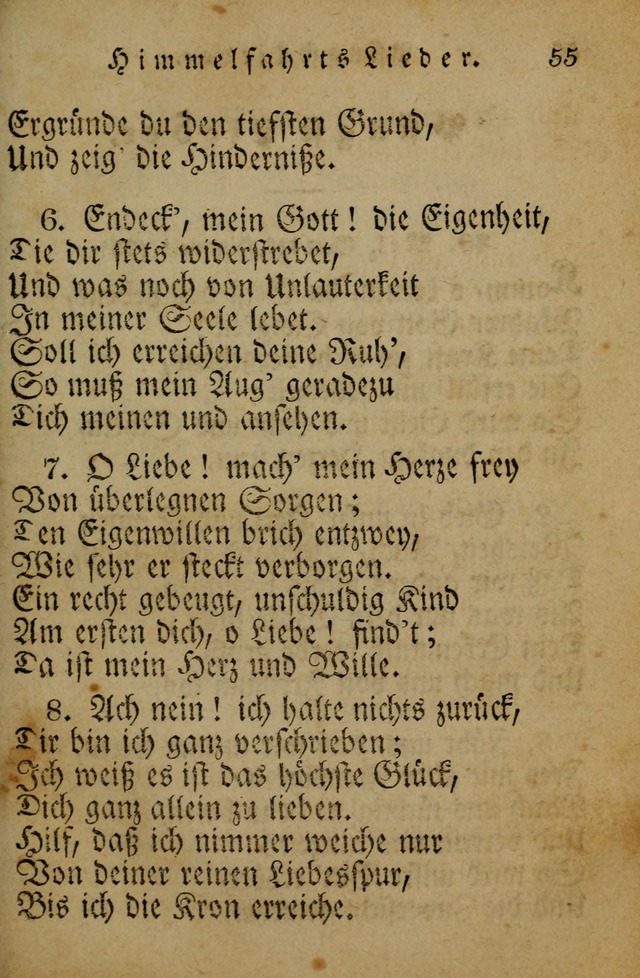 Himmelfahrts Lieder. 55
Ergründe du den tiefsten Grund,
Und zeig' die Hinderniße.
6. Endeck', mein Gott! die Eigenheit,
Die dir stets widerstrebet,
Und was noch von Unlauterkeit
In meiner Seele lebet.
Soll ich erreichen deine Ruh',
So muß mein Aug' geradezu
Dich meinen und ansehen.
7. O Liebe! mach' mein Herze frey
Von überlegnen Sorgen;
Den Eigenwillen brich entzwey,
Wie sehr er steckt verborgen.
Ein recht gebeugt, unschuldig Kind
Am ersten dich, o Liebe! find't;
Da ist mein Herz und Wille.
8. Ach nein! ich halte nichts zurück,
Dir bin ich ganz verschrieben;
Ich weiß es ist das höchste Glück,
Dich ganz allein zu lieben.
Hilf, daß ich nimmer weiche nur
Von deiner reinen Liebesspur,
Bis ich die Kron erreiche.